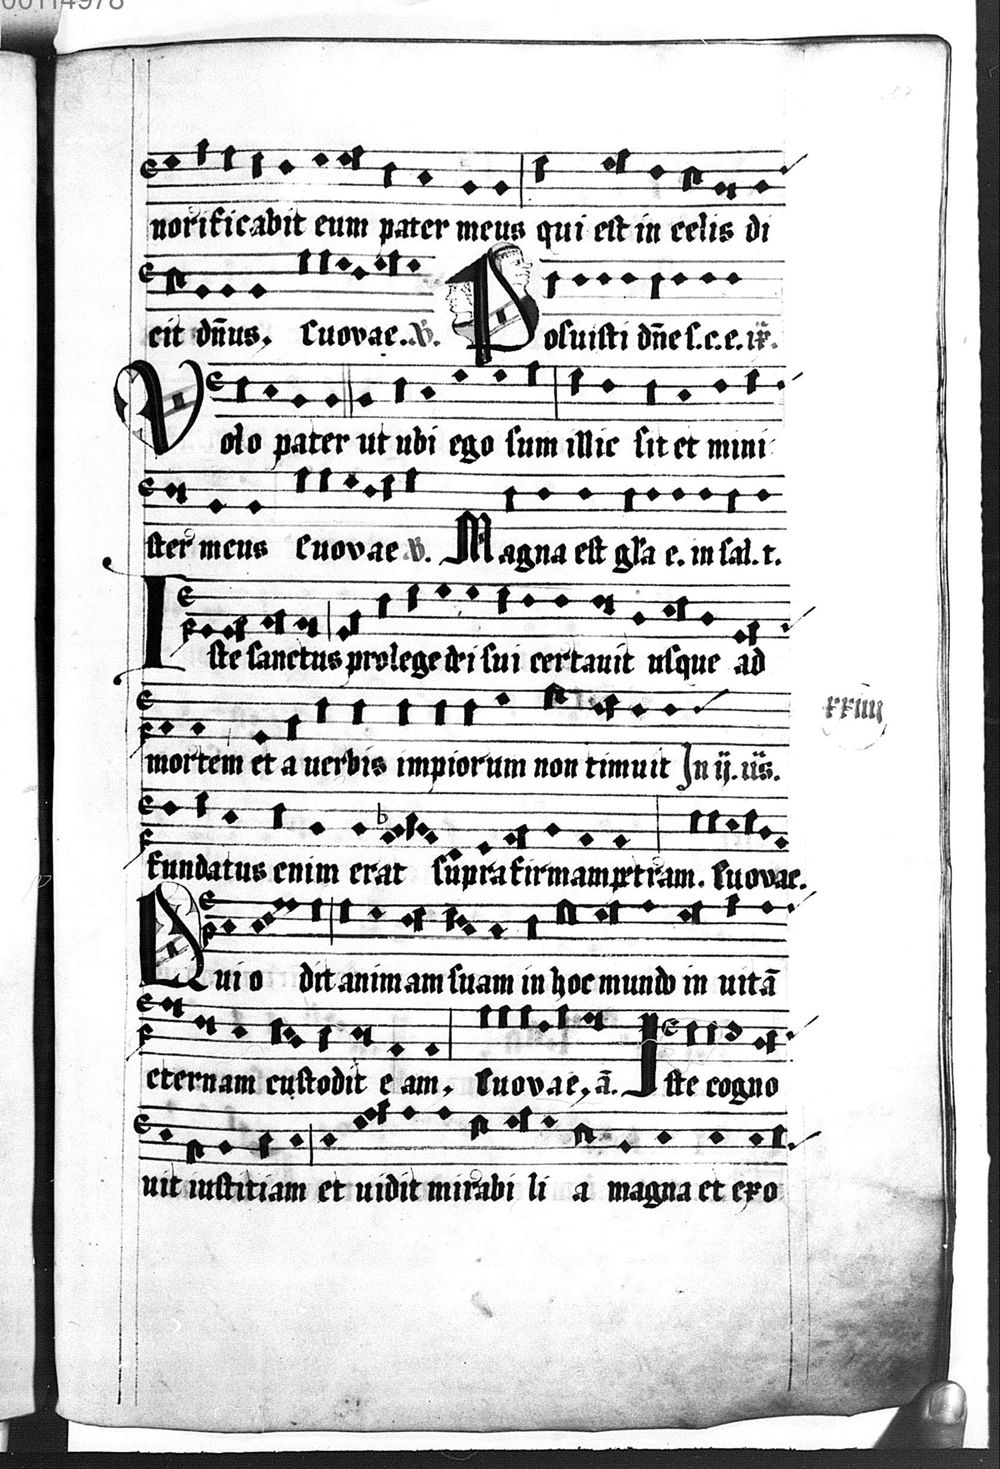 00114978
norificabit eum pater meus qui est in celis di
cit dn̄us. Euovae. V. Posuisti dn̄e s.c.e.
Volo pater ut ubi ego sum illic sit et mini
ster meus Euovae V. Magna est gl̄a e. in sal. t.
Iste sanctus pro lege dei sui certauit usque ad
mortem et a uerbis impiorum non timuit In ij. ūs.
xxiiij
fundatus enim erat supra firmam petram. Euovae.
Qui odit animam suam in hoc mundo in uitā
eternam custodit eam. Euovae, ā. Iste cogno
uit iustitiam et uidit mirabilia magna et exo